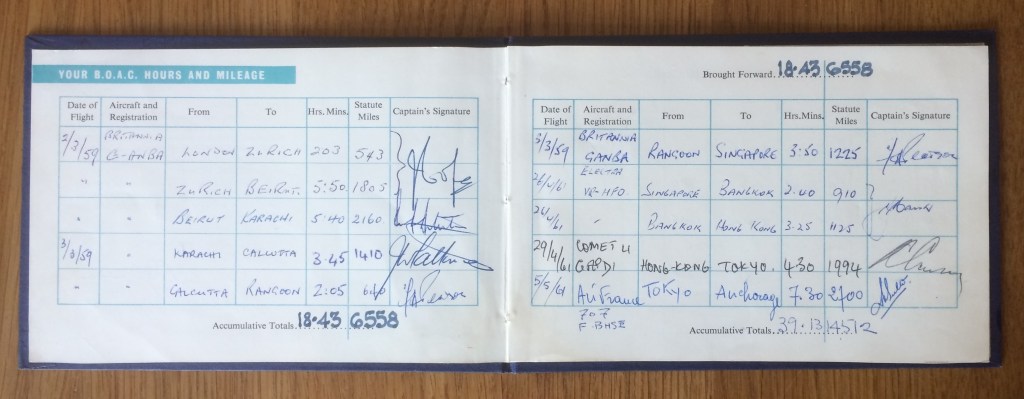 YOUR B.O.A.C. HOURS AND MILEAGE
Date of Flight Aircraft and Registration From To Hrs. Mins. Statute Miles Captain's Signature
2/3/59 BRITANNIA G-ANBA LONDON ZURICH 2 03 543
" " ZURICH BEIRUT. 5:50 1805
" BEIRUT KARACHI 5·40 2160
3/3/59 " KARACHI CALCUTTA 3·45 1410
" " CALCUTTA RANGOON 2:05
Accumulative Totals 18·43 6558
Brought Forward 18·43 6558
Date of Flight Aircraft and Registration From To Hrs. Mins. Statute Miles Captain's Signature
3/3/59 BRITANNIA GANBA RANGOON SINGAPORE 3·50 1225
ELECTRA VR-HFO SINGAPORE BANGKOK 2·40 910
BANGKOK HONG KONG 3·25 1125
29/4/61 COMET 4 HONG-KONG TOKYO. 4 30 1994
5/5/61 Air France TOKYO Anchorage 7.30 3700
707
F BHSE
Accumulative Totals 39·13 14512